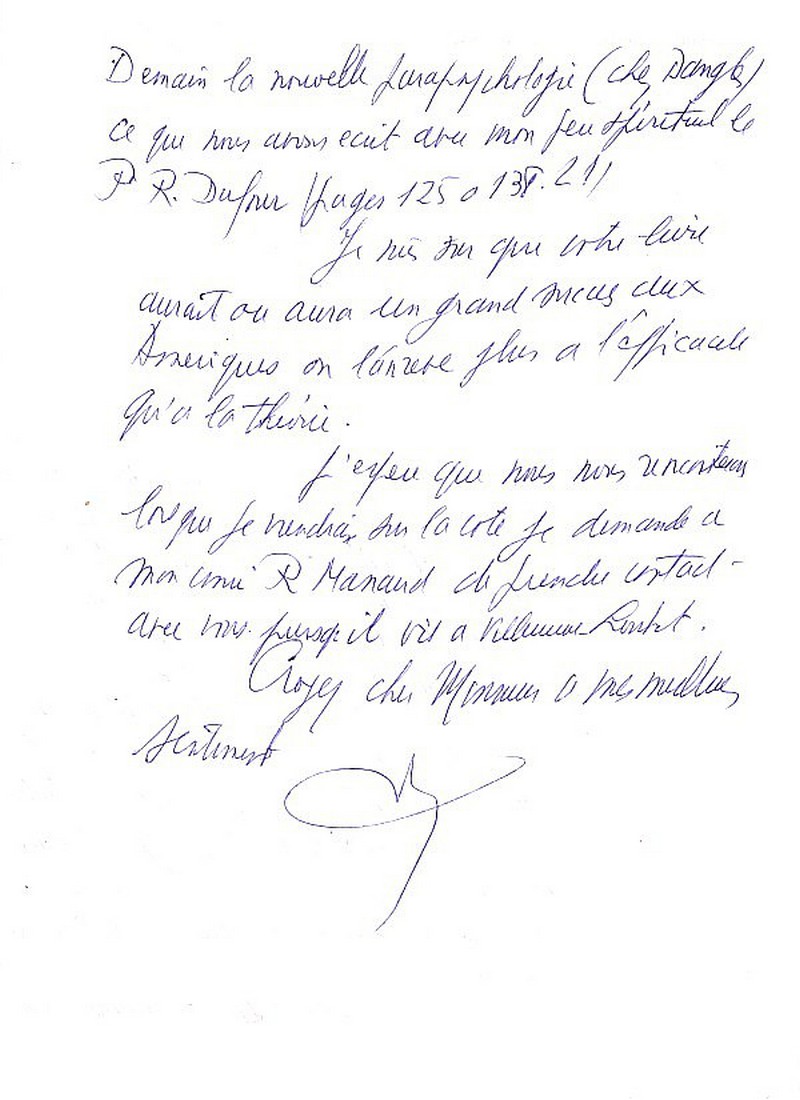 Demain la nouvelle parapsychologie (chez Dangles)
ce que nous avons ecrit avec mon feu spirituel le
P R. Dufour (pages 125 a 13
Je suis sur que votre livre
aurait ou aura un grand succes aux
Ameriques on l'on reve plus a l'éfficacite
qu'a la théorie.
J'espere que nous nous rencontrerons
lorsque je viendrai sur la cote je demande a
mon ami R Manaud de prendre contact
avec vous puisqu'il vit a Villeneuve Loubet.
Croyez cher Monsieur a mes meilleurs
sentiments